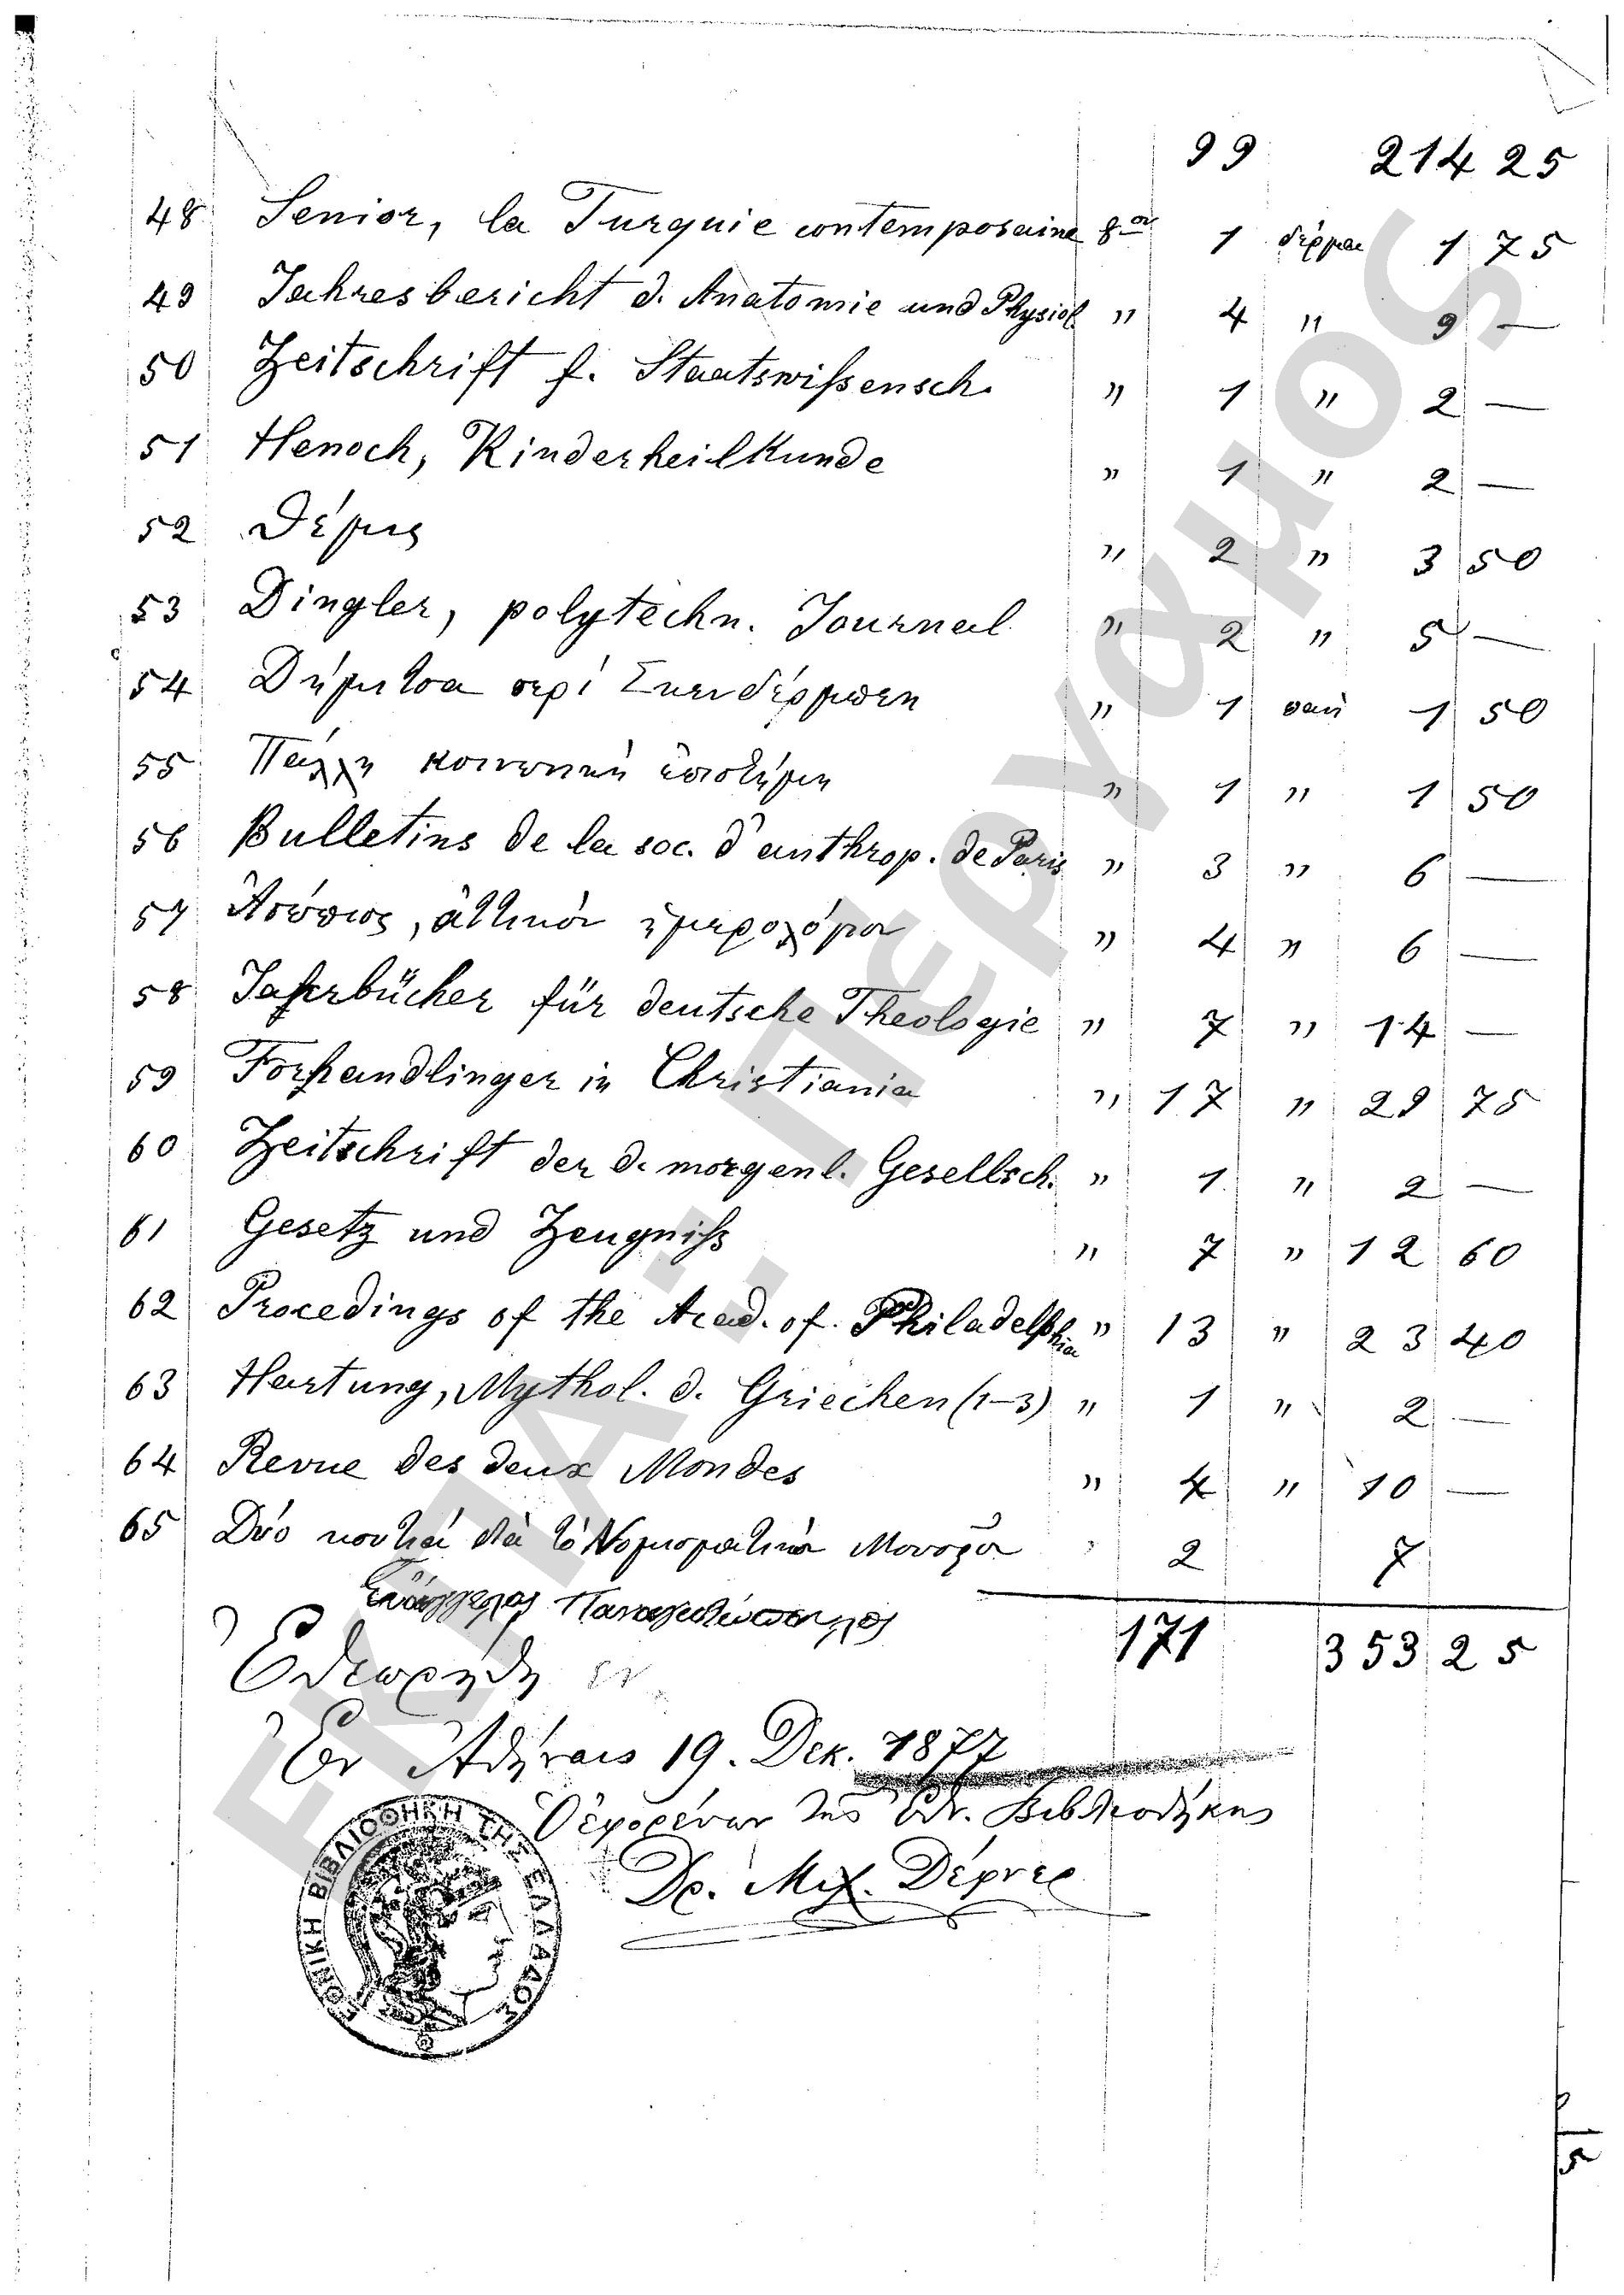 99 214 25
48 Senior, la Turquie contemporaine 8ον 1 δέρμα 1 75
49 Jahresbericht d. Anatomie und Physiol. " 4 " 9 —
50 Zeitschrift f. Staatswissensch. " 1 " 2 —
51 Henoch, Kinderheilkunde " 1 " 2 —
52 Θέμις " 2 " 3 50
53 Dingler, polytechn. Journal " 2 " 5 —
54 Δήμιτσα περί Σκενδέρμπεη " 1 πανί 1 50
55 Πάλλη κοινωνική ἐπιστήμη " 1 " 1 50
56 Bulletins de la soc. d'anthrop. de Paris " 3 " 6 —
57 Ἀσώπιος, ἀττικόν ἡμερολόγιον " 4 " 6 —
58 Jahrbücher für deutsche Theologie " 7 " 14 —
59 Forhandlinger in Christiania " 17 " 29 75
60 Zeitschrift der d. morgenl. Gesellsch. " 1 " 2 —
61 Gesetz und Zeugniß " 7 " 12 60
62 Procedings of the Acad. of. Philadelphia " 13 " 23 40
63 Hartung, Mythol. d. Griechen (1-3) " 1 " 2 —
64 Revue des deux Mondes " 4 " 10 —
65 Δύο κουτιά διὰ τὸ Νομισματικόν Μουσεῖον " 2 7
Εὐάγγελος Παναγιωτόπουλος
171 353 25
Ἐθεωρήθη
Ἐν Ἀθήναις 19. Δεκ. 1877
Ὁ ἐφορεύων τῆς Ἐθν. Βιβλιοθήκης
Δρ. Μιχ. Δέφνερ
ΕΘΝΙΚΗ ΒΙΒΛΙΟΘΗΚΗ ΤΗΣ ΕΛΛΑΔΟΣ
ΕΚΠΑ.: Πέργαμος